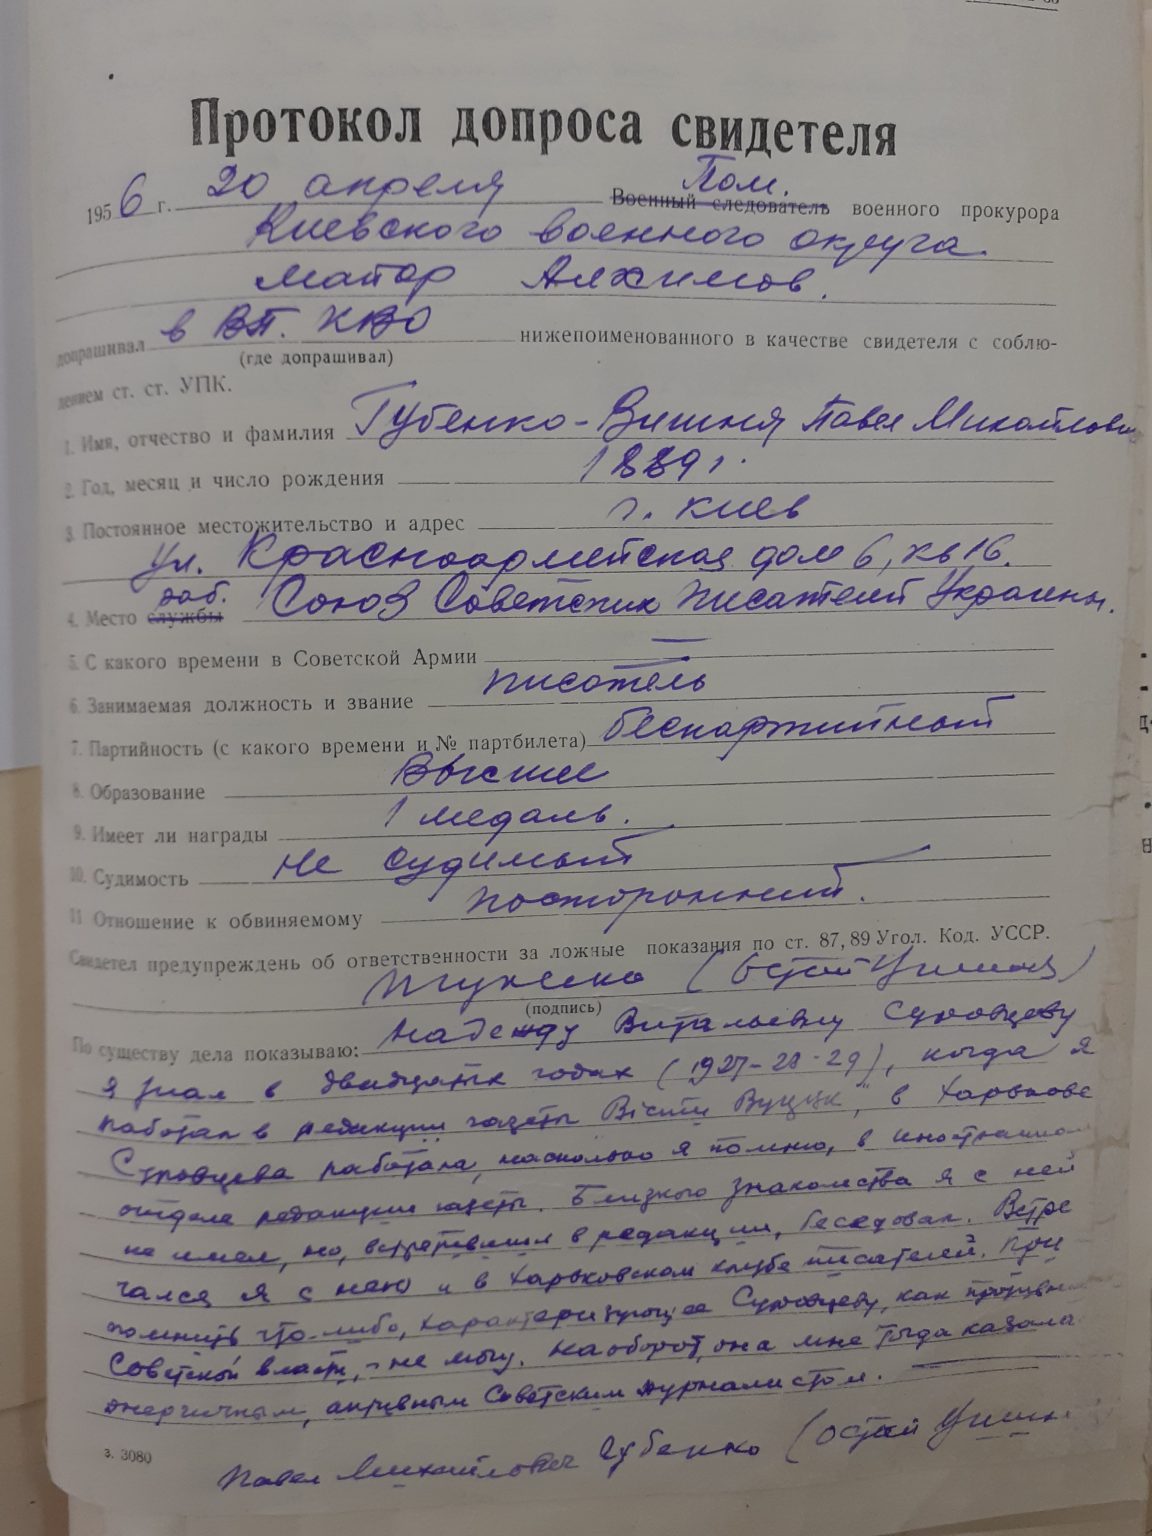 Протокол допроса свидетеля
Пом.
1956 г. 20 апреля Военный следователь военного прокурора
Киевского военного округа
майор Алхимов.
допрашивал в ВП. КВО нижепоименованного в качестве свидетеля с соблю-
(где допрашивал)
дением ст. ст. УПК.
1. Имя, отчество и фамилия Губенко-Вишня Павел Михайлович
2. Год, месяц и число рождения 1889 г.
3. Постоянное местожительство и адрес г. Киев
ул. Красноармейская дом 6, кв 16.
раб.
4. Место службы Союз Советских Писателей Украины.
5. С какого времени в Советской Армии —
6. Занимаемая должность и звание писатель
7. Партийность (с какого времени и № партбилета) беспартийный
8. Образование Высшее
9. Имеет ли награды 1 медаль.
10. Судимость не судимый
11 Отношение к обвиняемому посторонний.
Свидетел предупреждень об ответственности за ложные показания по ст. 87, 89 Угол. Код. УССР.
(Остап Вишня)
(подпись)
По существу дела показываю: Надежду Витальевну Суровцеву
я знал в двадцатых годах (1927-28-29), когда я
работал в редакции газеты "Вісти ВУЦВК", в Харькове
Суровцева работала, насколько я помню, в иностранном
отделе редакции газеты. Близкого знакомства я с ней
не имел, но, встретившись в редакции, беседовал. Встре
чался я с нею и в Харьковском клубе писателей. При
помнить что-либо, характеризующее Суровцеву, как противника
Советской власти, - не могу. Наоборот, она мне тогда казала
энергичным, активным Советским журналистом.
з. 3080
Павел Михайлович Губенко (Остап Вишня